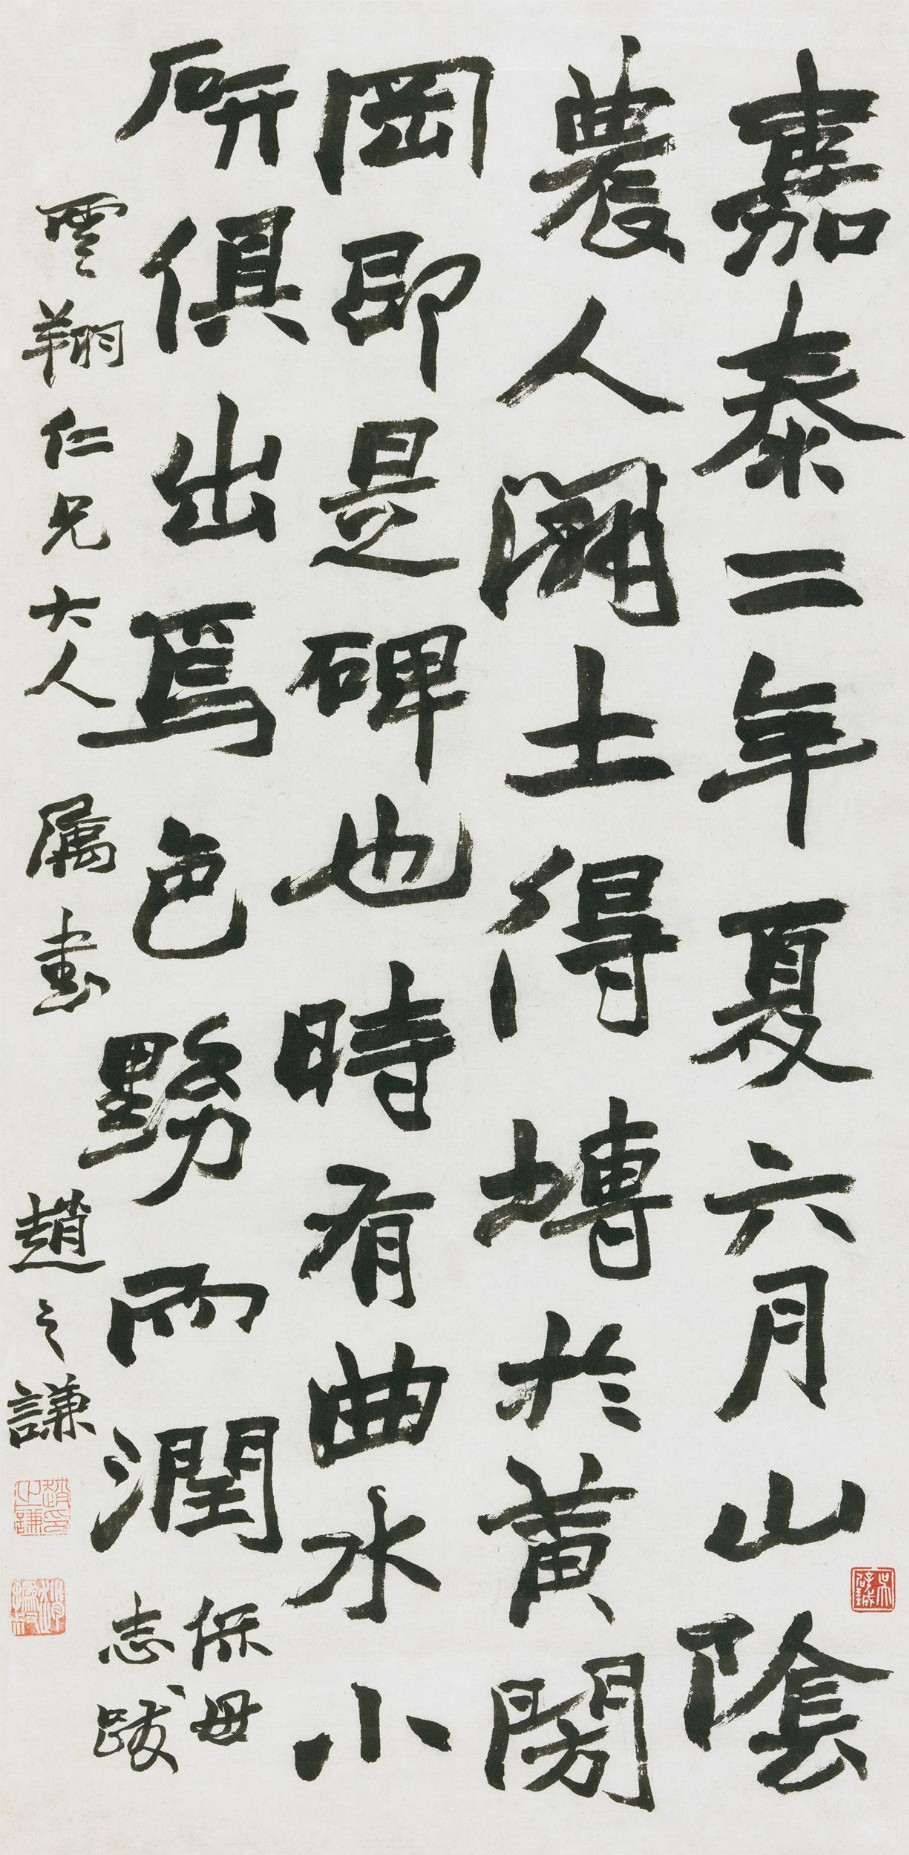 嘉泰二年夏六月山陰
農人闢土得塼於黃閍
岡即是碑也時有曲水小
研俱出焉色黝而潤
保母
志跋
雲翔仁兄大人屬書趙之謙
趙之謙印